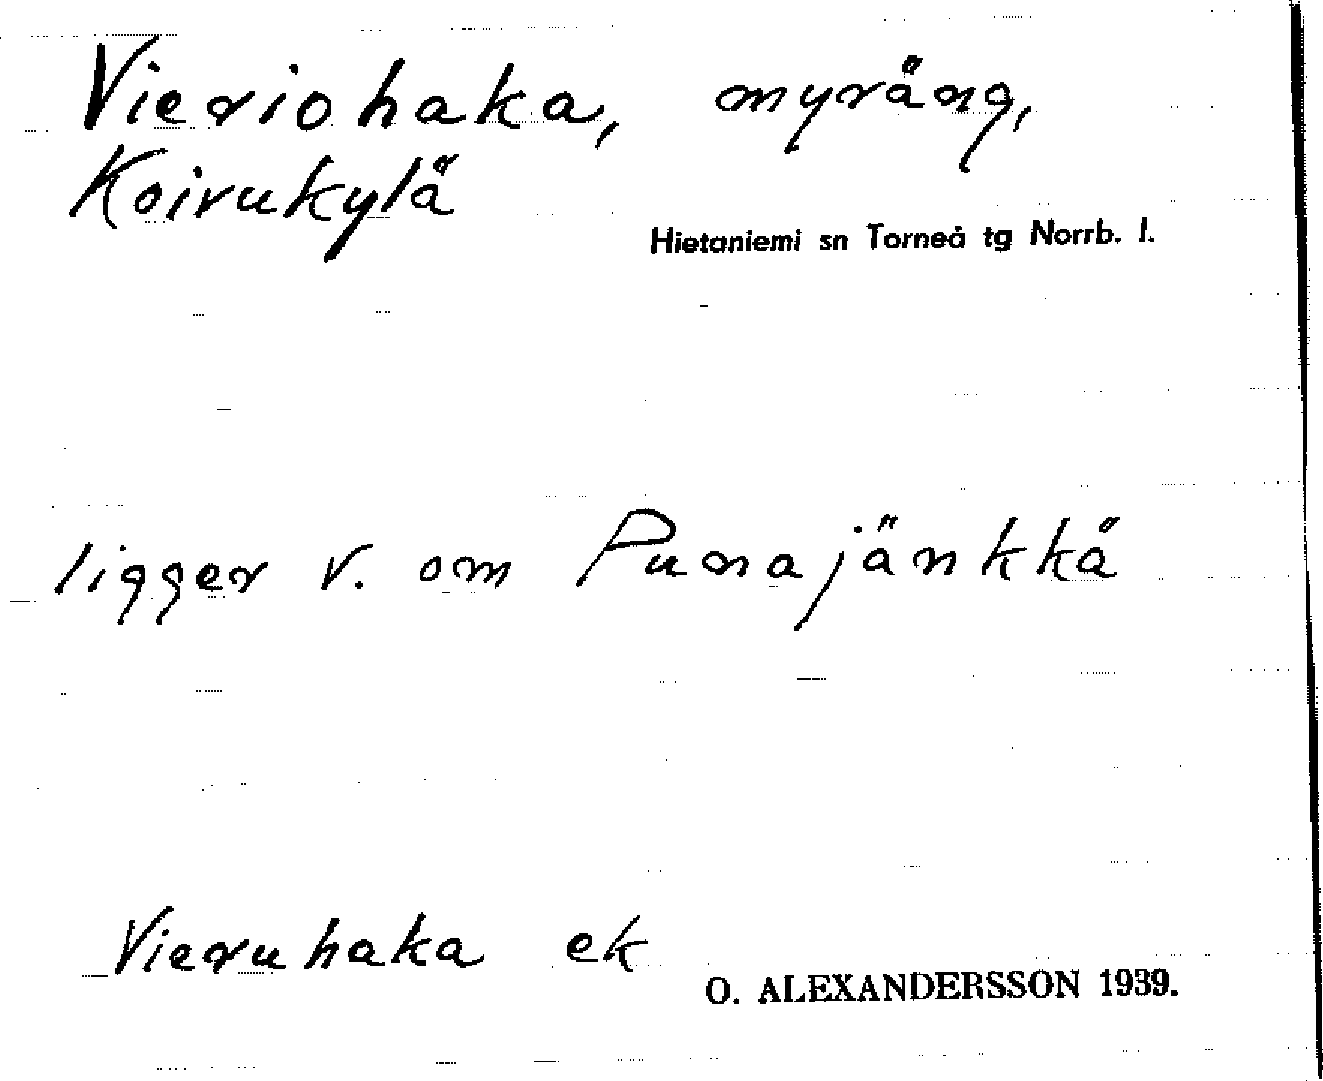 Vieriohaka, myräng,
Koivukylä
Hietaniemi sn Torneå tg Norrb. l.
ligger v. om Punajänkkä
Vieruhaka ek
O. ALEXANDERSSON 1939.